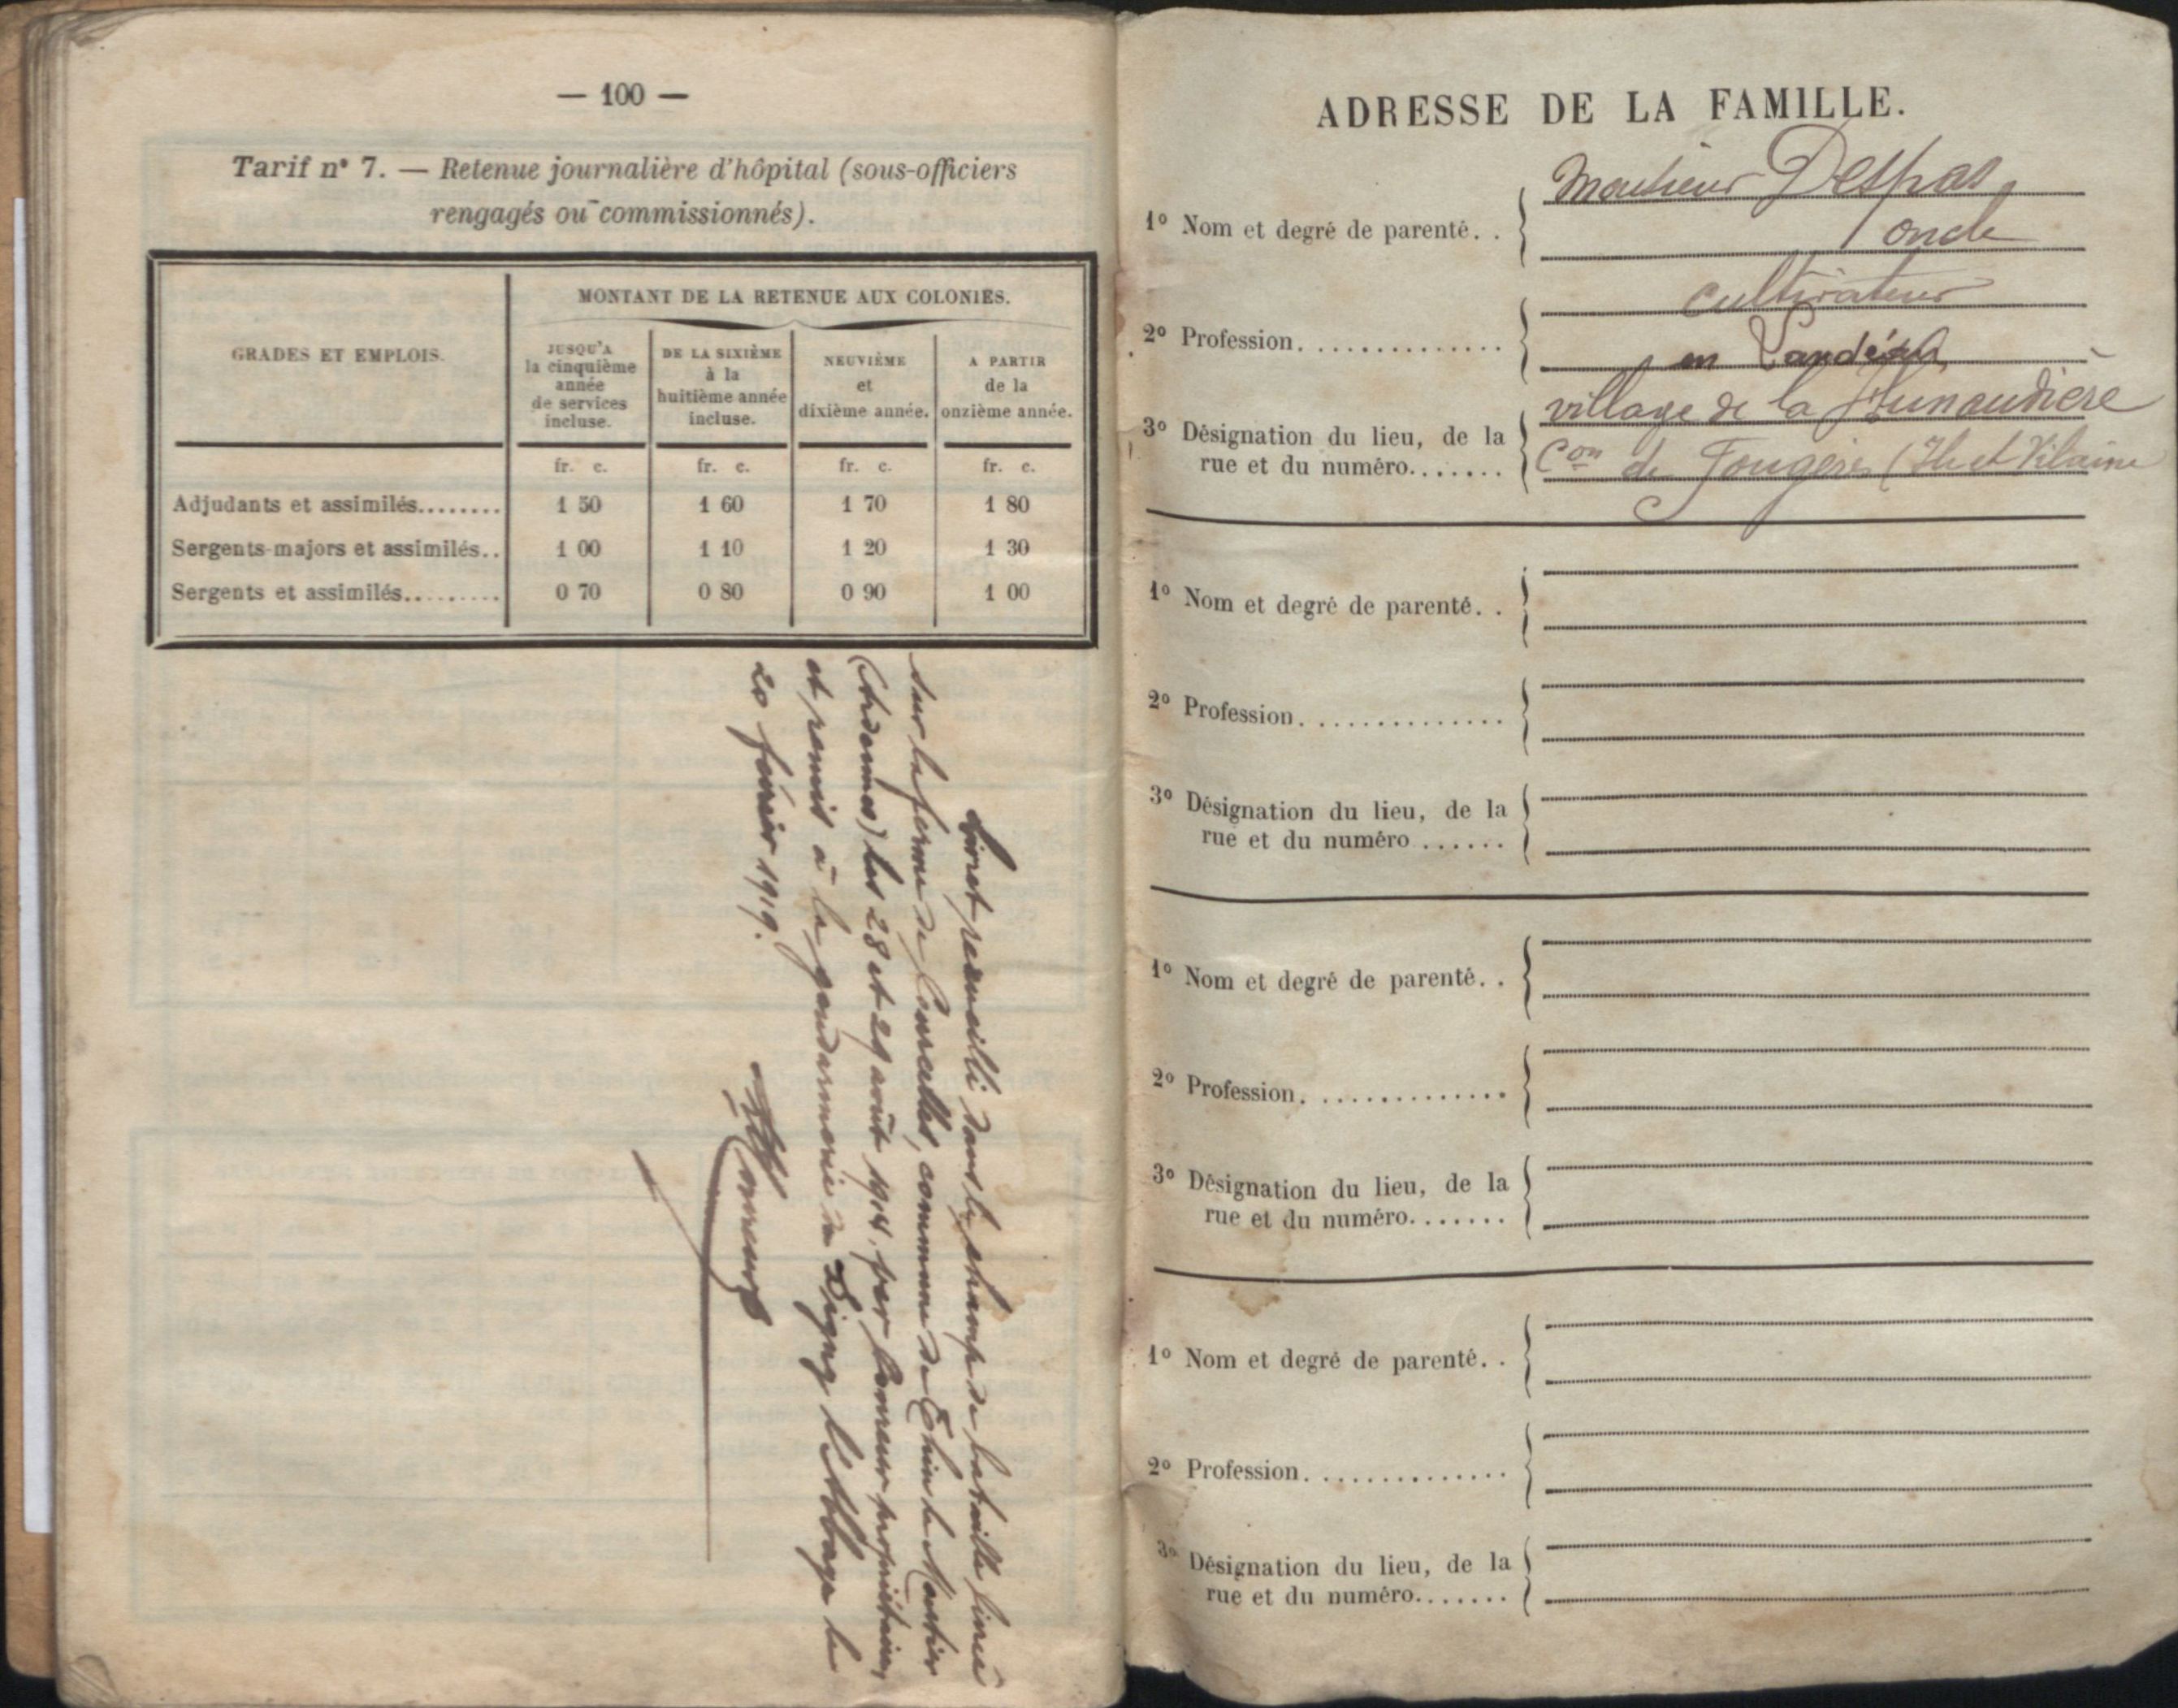 — 100 —
Tarif n° 7. — Retenue journalière d'hôpital (sous-officiers
rengagés ou commissionnés).
GRADES ET EMPLOIS.
MONTANT DE LA RETENUE AUX COLONIES.
JUSQU'A
la cinquième
année
de services
incluse.
DE LA SIXIÈME
à la
huitième année
incluse.
NEUVIÈME
et
dixième année.
A PARTIR
de la
onzième année.
fr. c. fr. c. fr. c. fr. c.
Adjudants et assimilés........ 1 50 1 60 1 70 1 80
Sergents-majors et assimilés.. 1 00 1 10 1 20 1 30
Sergents et assimilés......... 0 70 0 80 0 90 1 00
Livret recueilli dans le champ de bataille, situé
sur la ferme de Courcelles, commune de Thin le Moutier
(Ardennes) les 28 et 29 août 1914, par Conreur propriétaire,
et remis à la gendarmerie de Signy l'Abbaye le
20 février 1919.
Conreur
ADRESSE DE LA FAMILLE.
1° Nom et degré de parenté. . Monsieur Despas
oncle
2° Profession. . . . . . . . . . . . . . cultivateur
en Landéan
3° Désignation du lieu, de la village de la
rue et du numéro....... Con de Fougères (Ille et Vilaine
1° Nom et degré de parenté. .
2° Profession. . . . . . . . . . . . . .
3° Désignation du lieu, de la
rue et du numéro ......
1° Nom et degré de parenté. .
2° Profession. . . . . . . . . . . . . .
3° Désignation du lieu, de la
rue et du numéro.......
1° Nom et degré de parenté. .
2° Profession. . . . . . . . . . . . . .
3° Désignation du lieu, de la
rue et du numéro.......